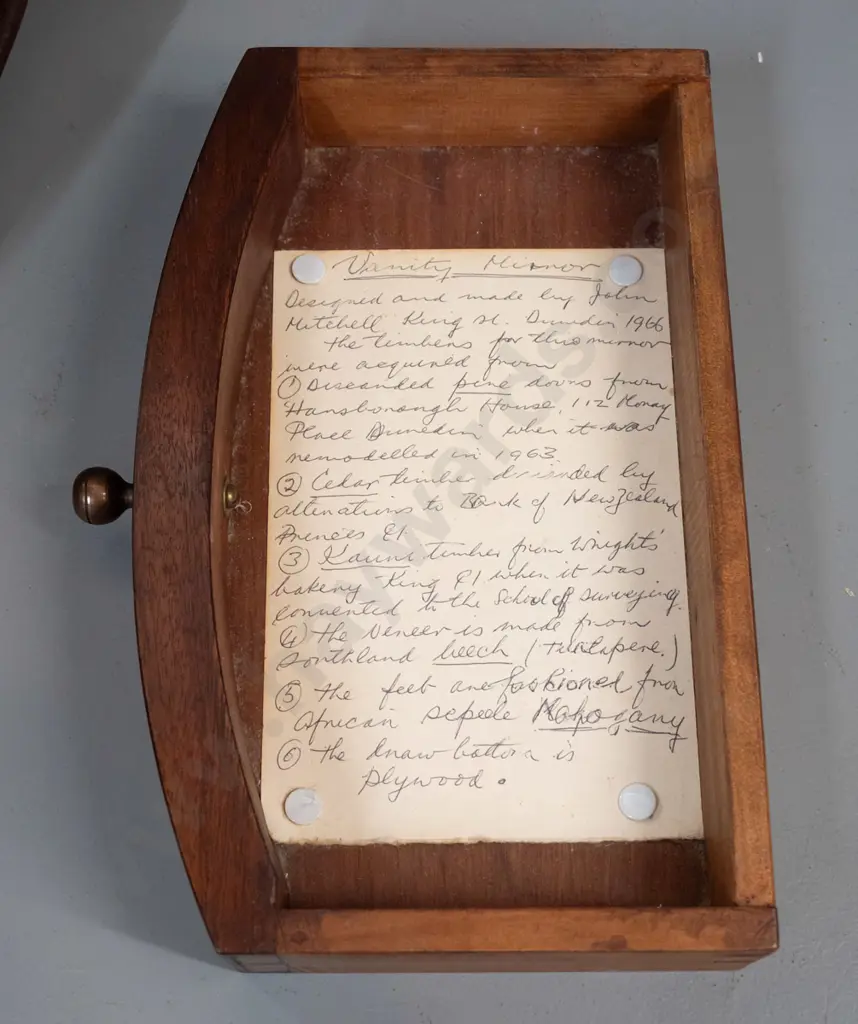 Vanity Mirror
Designed and made by John
Mitchell King St. Dunedin 1966
the timbers for this mirror
were acquired from
① Discarded pine doors from
Hansborough House, 112 Moray
Place Dunedin when it was
remodelled in 1963
② Cedar timber by
alterations to Bank of New Zealand
Princes St
③ Kauri timber from Wright's
bakery King St when it was
converted to the School of surveying.
④ the veneer is made from
Southland beech (Tuatapere.)
⑤ the feet are fashioned from
African sepele Mahogany
⑥ the draw bottom is
plywood.